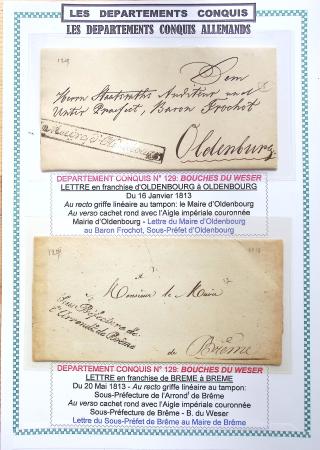 LES DEPARTEMENTS CONQUIS
LES DEPARTEMENTS CONQUIS ALLEMANDS
129
Dem
Herrn Staatsraths Auditeur und
Unter Praefect, Baron Frochot
Oldenburg
DEPARTEMENT CONQUIS N° 129: BOUCHES DU WESER
LETTRE en franchise d'OLDENBOURG à OLDENBOURG
Du 16 Janvier 1813
Au recto griffe linéaire au tampon: le Maire d'Oldenbourg
Au verso cachet rond avec l'Aigle impériale couronnée
Mairie d'Oldenbourg - Lettre du Maire d'Oldenbourg
au Baron Frochot, Sous-Préfet d'Oldenbourg
129
1813
A
Monsieur le Maire
Sous-Préfecture de
l'Arrond.t de Brême
de Brême
DEPARTEMENT CONQUIS N° 129: BOUCHES DU WESER
LETTRE en franchise de BREME à BREME
Du 20 Mai 1813 - Au recto griffe linéaire au tampon:
Sous-Préfecture de l'Arrondt de Brême
Au verso cachet rond avec l'Aigle impériale couronnée
Sous-Préfecture de Brême - B. du Weser
Lettre du Sous-Préfet de Brême au Maire de Brême